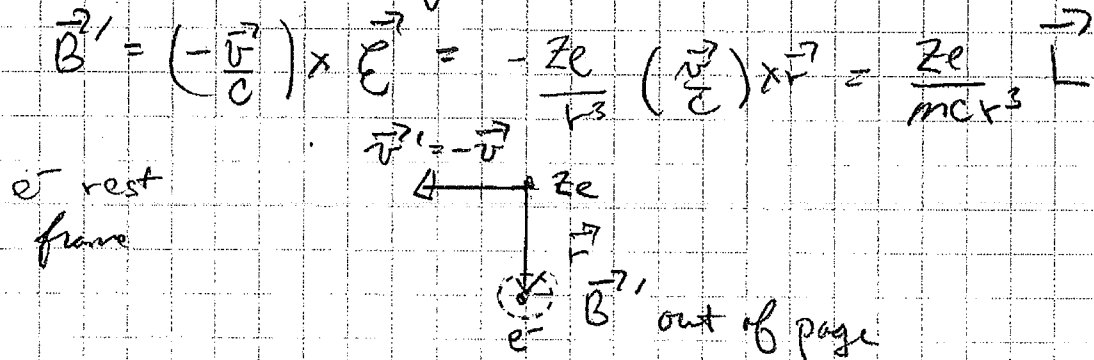 $\vec{B}' = \left(-\frac{\vec{v}}{c}\right) \times \vec{\mathcal{E}} = -\frac{Ze}{r^3} \left(\frac{\vec{v}}{c}\right) \times \vec{r} = \frac{Ze}{mcr^3} \vec{L}$
$\vec{v}' = -\vec{v}$
e⁻ rest Ze
frame $\vec{r}$
e⁻ $\vec{B}'$ out of page